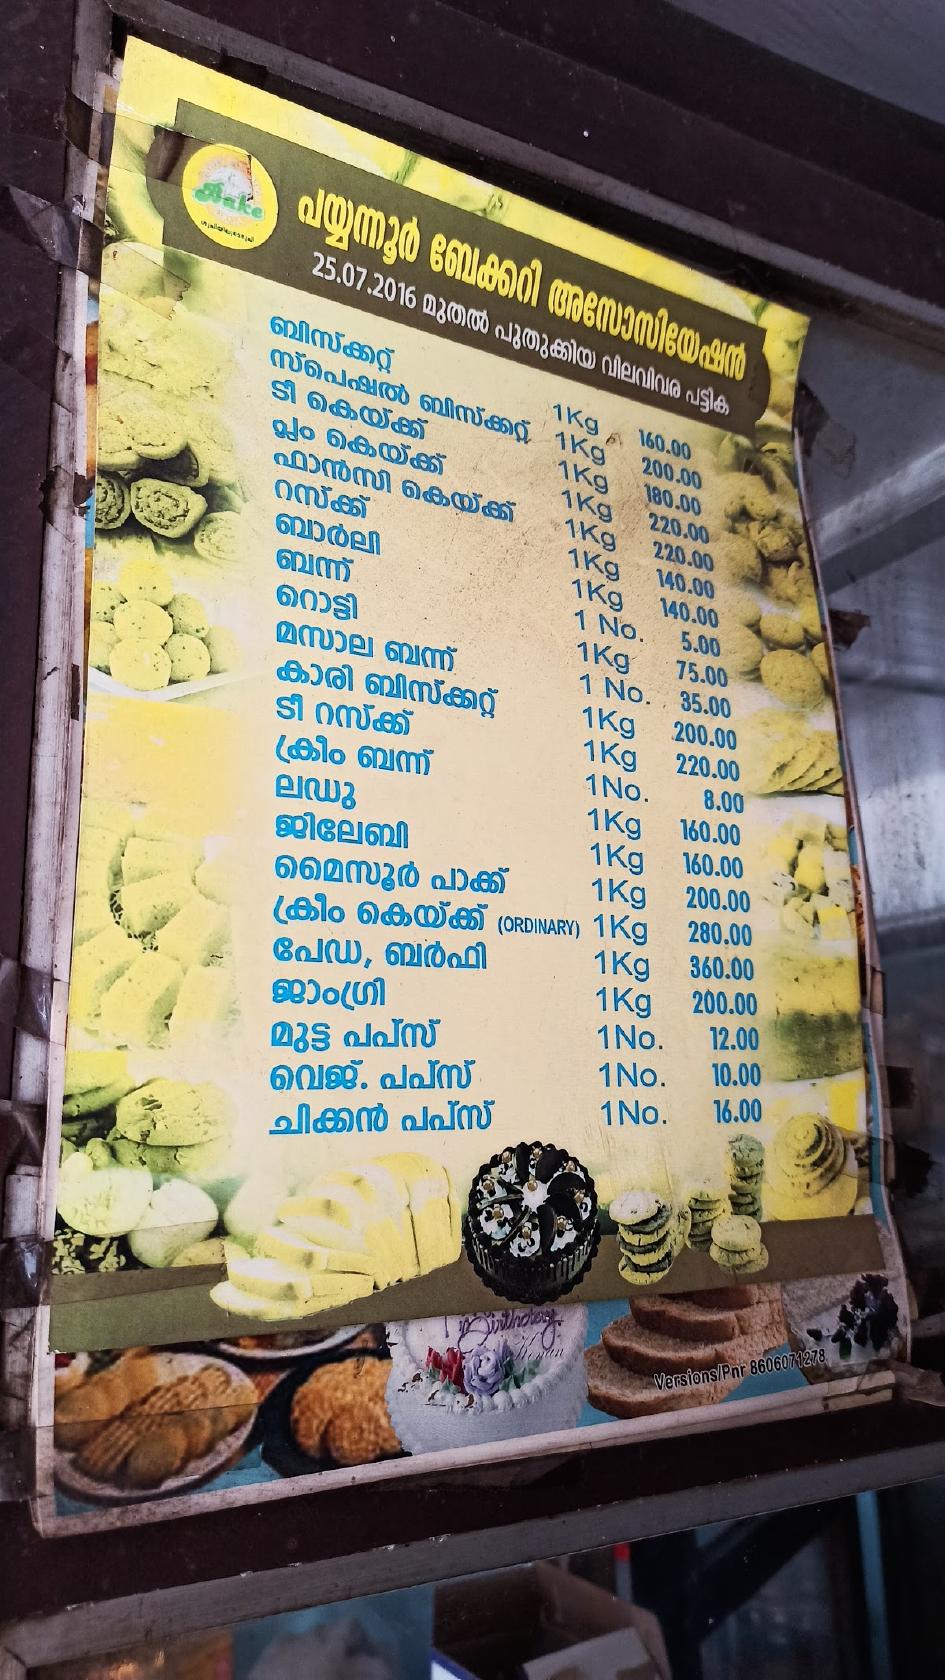 Bake
പയ്യന്നൂർ ബേക്കറി അസോസിയേഷൻ
25.07.2016 മുതൽ പുതുക്കിയ വിലവിവര പട്ടിക
ബിസ്ക്കറ്റ് 1Kg 160.00
സ്പെഷൽ ബിസ്ക്കറ്റ് 1Kg 200.00
ടീ കെയ്ക്ക് 1Kg 180.00
പ്ലം കെയ്ക്ക് 1Kg 220.00
ഫാൻസി കെയ്ക്ക് 1Kg 220.00
റസ്ക്ക് 1Kg 140.00
ബാർലി 1Kg 140.00
ബന്ന് 1 No. 5.00
റൊട്ടി 1Kg 75.00
മസാല ബന്ന് 1 No. 35.00
കാരി ബിസ്ക്കറ്റ് 1Kg 200.00
ടീ റസ്ക്ക് 1Kg 220.00
ക്രീം ബന്ന് 1No. 8.00
ലഡു 1Kg 160.00
ജിലേബി 1Kg 160.00
മൈസൂർ പാക്ക് 1Kg 200.00
ക്രീം കെയ്ക്ക് (ORDINARY) 1Kg 280.00
പേഡ, ബർഫി 1Kg 360.00
ജാംഗ്രി 1Kg 200.00
മുട്ട പപ്സ് 1No. 12.00
വെജ്. പപ്സ് 1No. 10.00
ചിക്കൻ പപ്സ് 1No. 16.00
Birthday
Versions/Pnr 8606071278